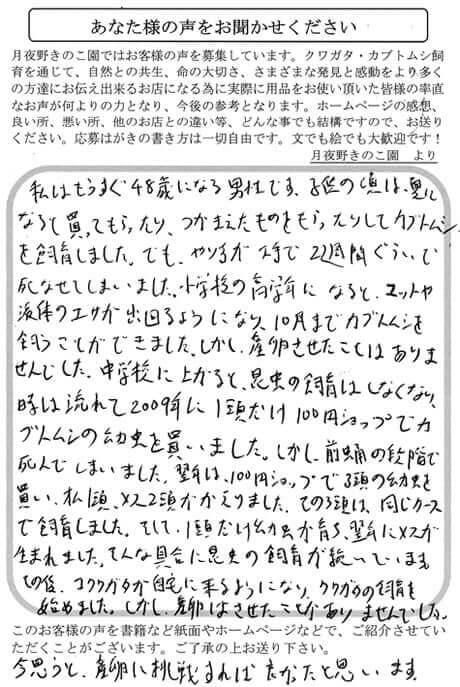 あなた様の声をお聞かせください
月夜野きのこ園ではお客様の声を募集しています。クワガタ・カブトムシ飼
育を通じて、自然との共生、命の大切さ、さまざまな発見と感動をより多く
の方達にお伝え出来るお店になる為に実際に用品をお使い頂いた皆様の率直
なお声が何よりの力となり、今後の参考となります。ホームページの感想、
良い所、悪い所、他のお店との違い等、どんな事でも結構ですので、お送り
ください。応募はがきの書き方は一切自由です。文でも絵でも大歓迎です！
月夜野きのこ園 より
私はもうすぐ48歳になる男性です。子供の頃は、夏に
なると買ってもらったり、つかまえたものをもらったりしてカブトムシ
を飼育しました。でも、やり方が下手で2週間ぐらいで
死なせてしまいました。小学校の高学年になると、ゼリーや
液体のエサが出回るようになり、10月までカブトムシを
飼うことができました。しかし、産卵させたことはありま
せんでした。中学校に上がると、昆虫の飼育はしなくなり、
時は流れて2009年に1頭だけ100円ショップでカ
ブトムシの幼虫を買いました。しかし、前蛹の段階で
死んでしまいました。翌年は、100円ショップで3頭の幼虫を
買い、オス1頭、メス2頭がかえりました。その3頭は、同じケース
で飼育しました。そして、1頭だけ幼虫が育ち、翌年にメスが
生まれました。そんな具合に昆虫の飼育が続いています。
その後、コクワガタが自宅に来るようになり、クワガタの飼育を
始めました。しかし、産卵はさせたことがありませんでした。
このお客様の声を書籍など紙面やホームページなどで、ご紹介させてい
ただくことがございます。ご了承の上お送り下さい。
今思うと、産卵に挑戦すればよかったと思います